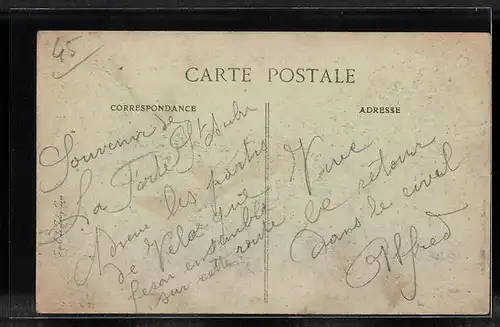 45
CARTE POSTALE
CORRESPONDANCE
ADRESSE
Souvenir de
La Ferté St Aubin
les partis
de Vélo que
ensemble
sur cette route
Vive
le retour
dans le civil
Alfred